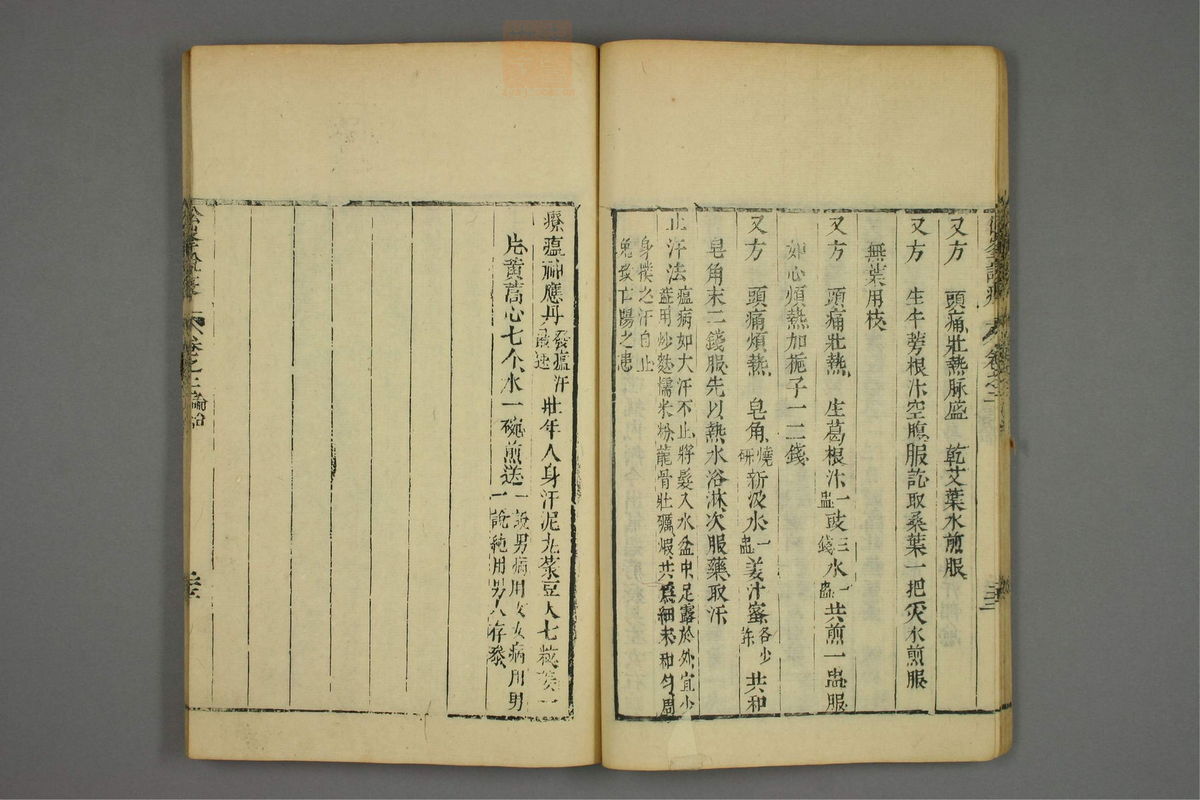 又方 頭痛壯熱脉盛 乾艾葉水煎服
又方 生牛蒡根汁空腹服訖取桑葉一把灭水煎服
無葉用枝
又方 頭痛壯熱 生葛根汁一盅豉三錢水一盅共煎一盅服
如心煩熱加梔子一二錢
又方 頭痛煩熱 皂角燒研新汲水一盅姜汁蜜各少許共和
皂角末二錢服先以熱水浴淋次服藥取汗
止汗法瘟病如大汗不止將髮入水盆中足露於外宜少
蓋用炒麩糯米粉龍骨牡礪煆共爲細末和勻周
身撲之汗自止
免致亡陽之患
療瘟神應丹發瘟汗
壯年人身汗泥丸菉豆大七粒姜一
片黃蒿心七个水一碗煎送一說男病用女女病用男
一說純用男人存參
卷之二論治